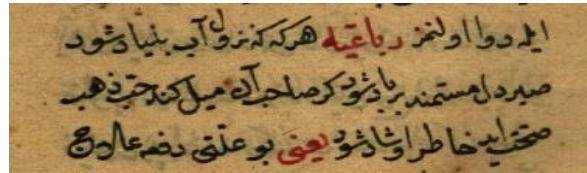 ایله دوا اولنمز رباعیه هرکه که نزول آب بنیاد شود
صبر دل مستمند برباد شود کر صاحب آن میل کند حب ذهب
صحت یابد خاطر او شاد شود یعنی بو علتی دفعه علاج